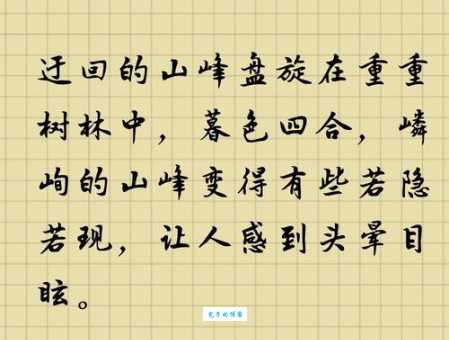 迂回的山峰盘旋在重重
树林中，暮色四合，嶙
峋的山峰变得有些若隐
若现，让人感到头晕目
眩。